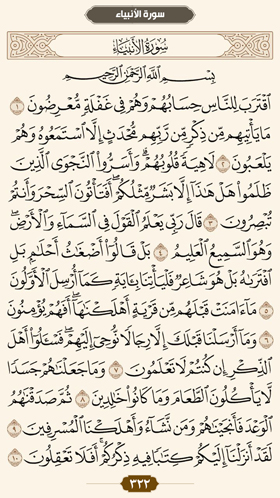 سورة الأنبياء
سُورَةُ الأَنبِيَاءِ
بِسْمِ اللَّهِ الرَّحْمَٰنِ الرَّحِيمِ
اقْتَرَبَ لِلنَّاسِ حِسَابُهُمْ وَهُمْ فِي غَفْلَةٍ مُّعْرِضُونَ ١
مَا يَأْتِيهِم مِّن ذِكْرٍ مِّن رَّبِّهِم مُّحْدَثٍ إِلَّا اسْتَمَعُوهُ وَهُمْ
يَلْعَبُونَ ٢ لَاهِيَةً قُلُوبُهُمْ ۗ وَأَسَرُّوا النَّجْوَى الَّذِينَ
ظَلَمُوا هَلْ هَٰذَا إِلَّا بَشَرٌ مِّثْلُكُمْ ۖ أَفَتَأْتُونَ السِّحْرَ وَأَنتُمْ
تُبْصِرُونَ ٣ قَالَ رَبِّي يَعْلَمُ الْقَوْلَ فِي السَّمَاءِ وَالْأَرْضِ ۖ
وَهُوَ السَّمِيعُ الْعَلِيمُ ٤ بَلْ قَالُوا أَضْغَاثُ أَحْلَامٍ بَلِ
افْتَرَاهُ بَلْ هُوَ شَاعِرٌ فَلْيَأْتِنَا بِآيَةٍ كَمَا أُرْسِلَ الْأَوَّلُونَ
٥ مَا آمَنَتْ قَبْلَهُم مِّن قَرْيَةٍ أَهْلَكْنَاهَا ۖ أَفَهُمْ يُؤْمِنُونَ
٦ وَمَا أَرْسَلْنَا قَبْلَكَ إِلَّا رِجَالًا نُّوحِي إِلَيْهِمْ ۖ فَاسْأَلُوا أَهْلَ
الذِّكْرِ إِن كُنتُمْ لَا تَعْلَمُونَ ٧ وَمَا جَعَلْنَاهُمْ جَسَدًا
لَّا يَأْكُلُونَ الطَّعَامَ وَمَا كَانُوا خَالِدِينَ ٨ ثُمَّ صَدَقْنَاهُمُ
الْوَعْدَ فَأَنجَيْنَاهُمْ وَمَن نَّشَاءُ وَأَهْلَكْنَا الْمُسْرِفِينَ ٩
لَقَدْ أَنزَلْنَا إِلَيْكُمْ كِتَابًا فِيهِ ذِكْرُكُمْ ۖ أَفَلَا تَعْقِلُونَ ١٠
٣٢٢